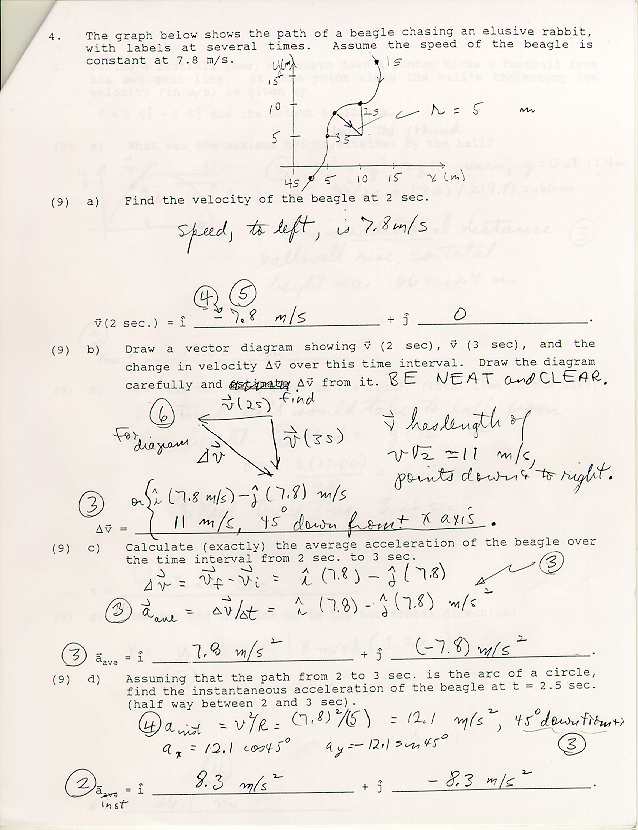 4. The graph below shows the path of a beagle chasing an elusive rabbit,
with labels at several times. Assume the speed of the beagle is
constant at 7.8 m/s.
y(m)
1s
15
10
2s
r = 5 m
5
3s
4s 5 10 15 x (m)
(9) a) Find the velocity of the beagle at 2 sec.
speed, to left, is 7.8 m/s
④ ⑤
v⃗(2 sec.) = î - 7.8 m/s + ĵ 0 .
(9) b) Draw a vector diagram showing v⃗ (2 sec), v⃗ (3 sec), and the
change in velocity Δv⃗ over this time interval. Draw the diagram
carefully and estimate Δv⃗ from it. BE NEAT and CLEAR.
find
v⃗(2s)
⑥
For diagram
Δv⃗
v⃗(3s)
v⃗ has length of
v√2 ≃ 11 m/s,
points down & to right.
③ or { î (7.8 m/s) - ĵ (7.8) m/s
Δv⃗ = 11 m/s, 45° down from + x axis .
(9) c) Calculate (exactly) the average acceleration of the beagle over
the time interval from 2 sec. to 3 sec.
Δv⃗ = v⃗f - v⃗i = î (7.8) - ĵ (7.8) ③
③ a⃗ave = Δv⃗/Δt = î (7.8) - ĵ (7.8) m/s²
③ a⃗ave = î 7.8 m/s² + ĵ (-7.8) m/s² .
(9) d) Assuming that the path from 2 to 3 sec. is the arc of a circle,
find the instantaneous acceleration of the beagle at t = 2.5 sec.
(half way between 2 and 3 sec).
④ a inst = v²/R = (7.8)²/(5) = 12.1 m/s², 45° down from +x
ax = 12.1 cos45° ay = -12.1 sin45° ③
② a⃗ave = î 8.3 m/s² + ĵ - 8.3 m/s² .
inst